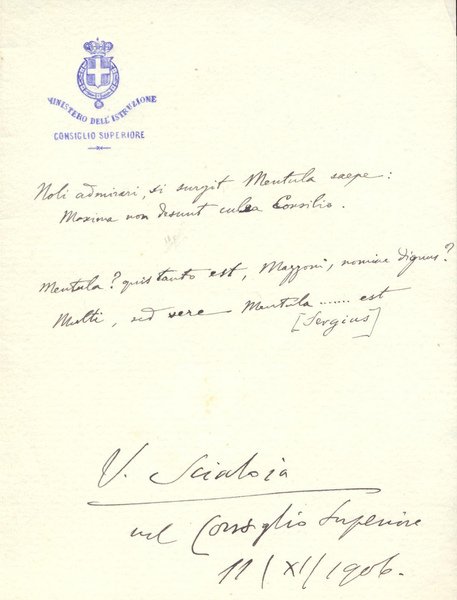 MINISTERO DELL'ISTRUZIONE
CONSIGLIO SUPERIORE
Noli admirari, si surgit Mentula saepe:
Maxima non desunt culea Consilio.
Mentula? quis tanto est, Mazzoni, nomine dignus?
Multi, sed vere Mentula ....... est
[Sergius]
V. Scialoia
nel Consiglio Superiore
11/XI/1906.